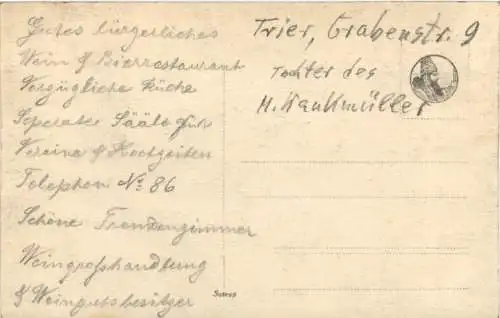 Gutes bürgerliches
Wein & Bierrestaurant
Vorzügliche Küche
Seperater Sääle für
Vereine & Hochzeiten
Telephon № 86
Schöne Fremdenzimmer
Weingroßhandlung
& Weingutsbesitzer
Trier, Grabenstr. 9
Tochter des
H. Kaukmüller